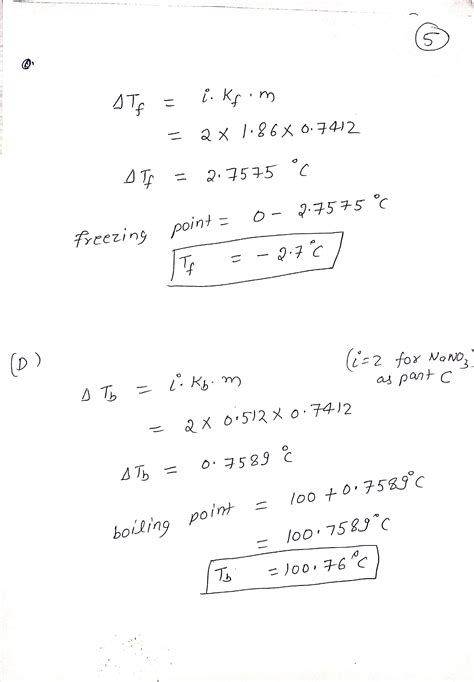 5
ΔTf = i. Kf . m
= 2 x 1.86 x 0.7412
ΔTf = 2.7575 °C
freezing point = 0 - 2.7575 °C
Tf = - 2.7 °C
(D)
(i=2 for NaNO3
as part C
Δ Tb = i. Kb. m
= 2 x 0.512 x 0.7412
ΔTb = 0.7589 °C
boiling point = 100 + 0.7589°C
= 100.7589°C
Tb = 100.76 °C